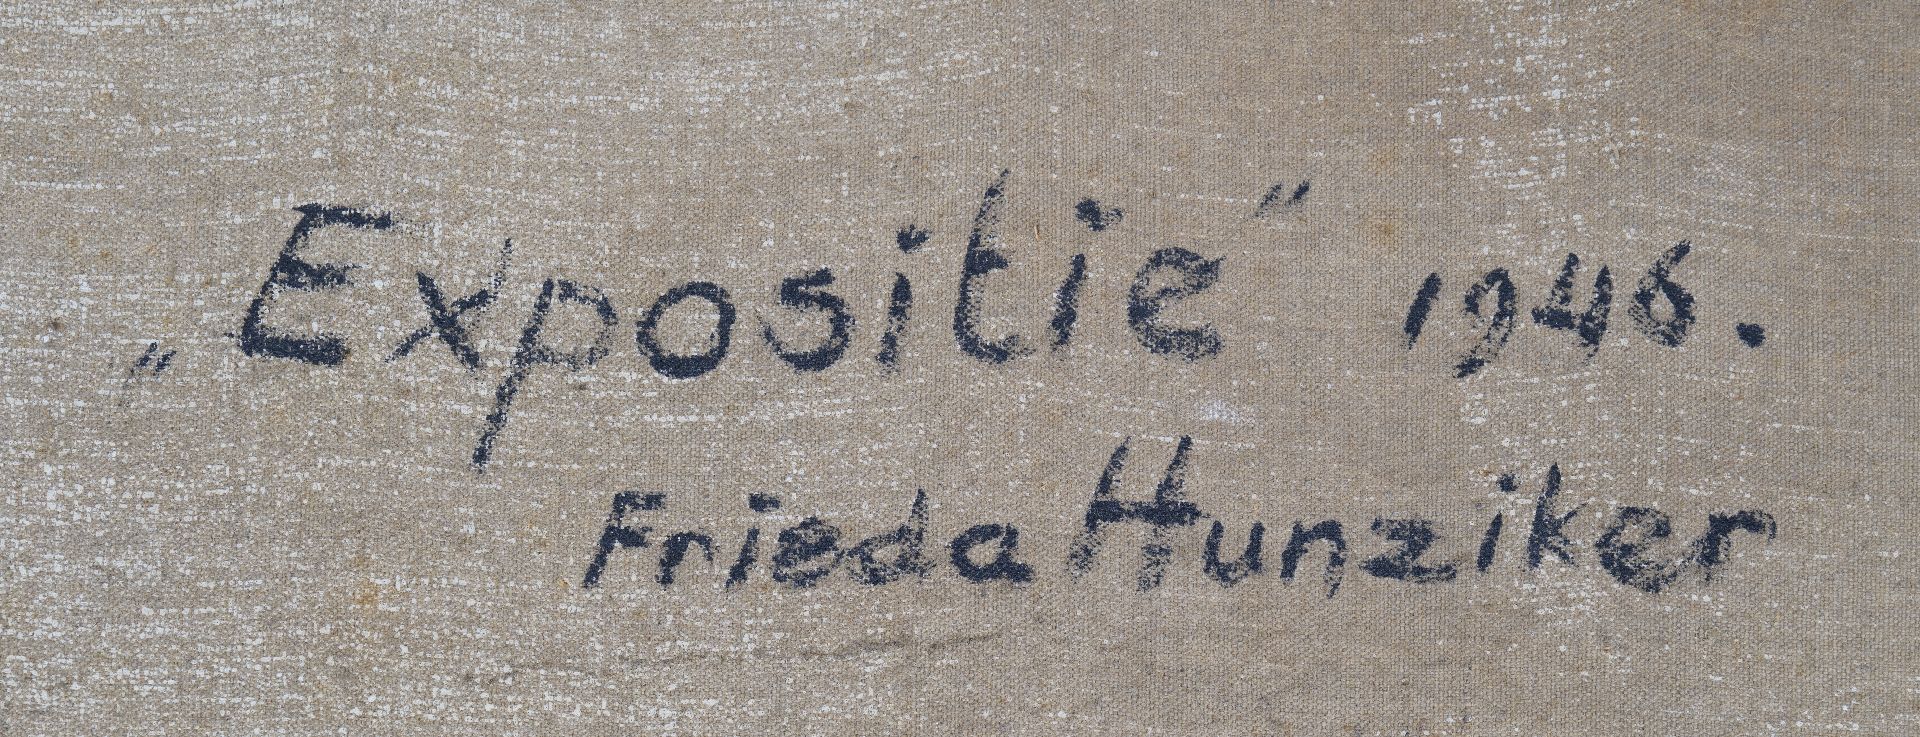 „Expositie” 1946.
Frieda Hunziker